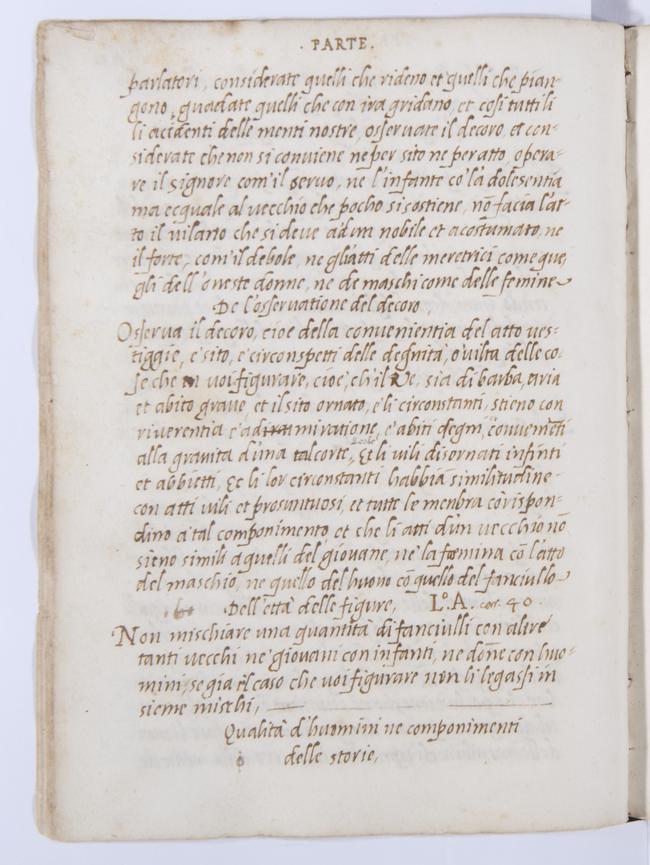 . PARTE .
parlatori, considerate quelli che rideno et quelli che pian-
gono, guadate quelli che con ira gridano, et cosi tutti li
li acidenti delle menti nostre, osservate il decoro, et con-
siderate che non si conviene ne per sito ne per atto, opera-
re il signore com'il servo, ne l'infante cō la dolesentia
ma ecquale al vecchio che pocho si sostiene, nō facia l'at-
to il vilano che si deve ad un nobile et acostumato, ne
il forte, com'il debole, ne gli atti delle meretrici come que,
gli dell'oneste donne, ne de maschi come delle femine
De l'osservatione del decoro.
Osserva il decoro, cioe della convenientia del atto ves-
tiggie, e sito, e circonspetti delle degnità, o viltà delle co-
se che voi figurare, cioe, ch'il Re, sia di barba, aria
et abito grave, et il sito ornato, e li circonstanti, stieno con
riverentia e admiratione, e abiti degni, e convenienti
alla gravita d'una tal corte, Et li vili disornati infinti
et abbietti, Et li lor circonstanti habbiā similitudine
con atti vili et prosuntuosi, et tutte le menbra corispon-
dino a tal componimento, et che li atti d'un vecchio nō
sieno simili a quelli del giovane, ne la femina cō l'atto
del maschio, ne quello del huono cō quello del fanciullo
Dell'età delle figure, L.º A. car. 40.
Non mischiare una quantità di fanciulli con altre
tanti vecchi ne giovani con infanti, ne dōne con huo-
mini, se gia il caso che voi figurare non li legassi in
sieme mischi,
Qualità d'huomini ne componimenti
delle storie,